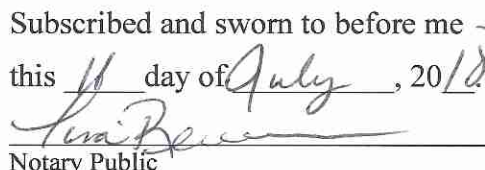 Subscribed and sworn to before me
this 11 day of July, 2018.
Notary Public